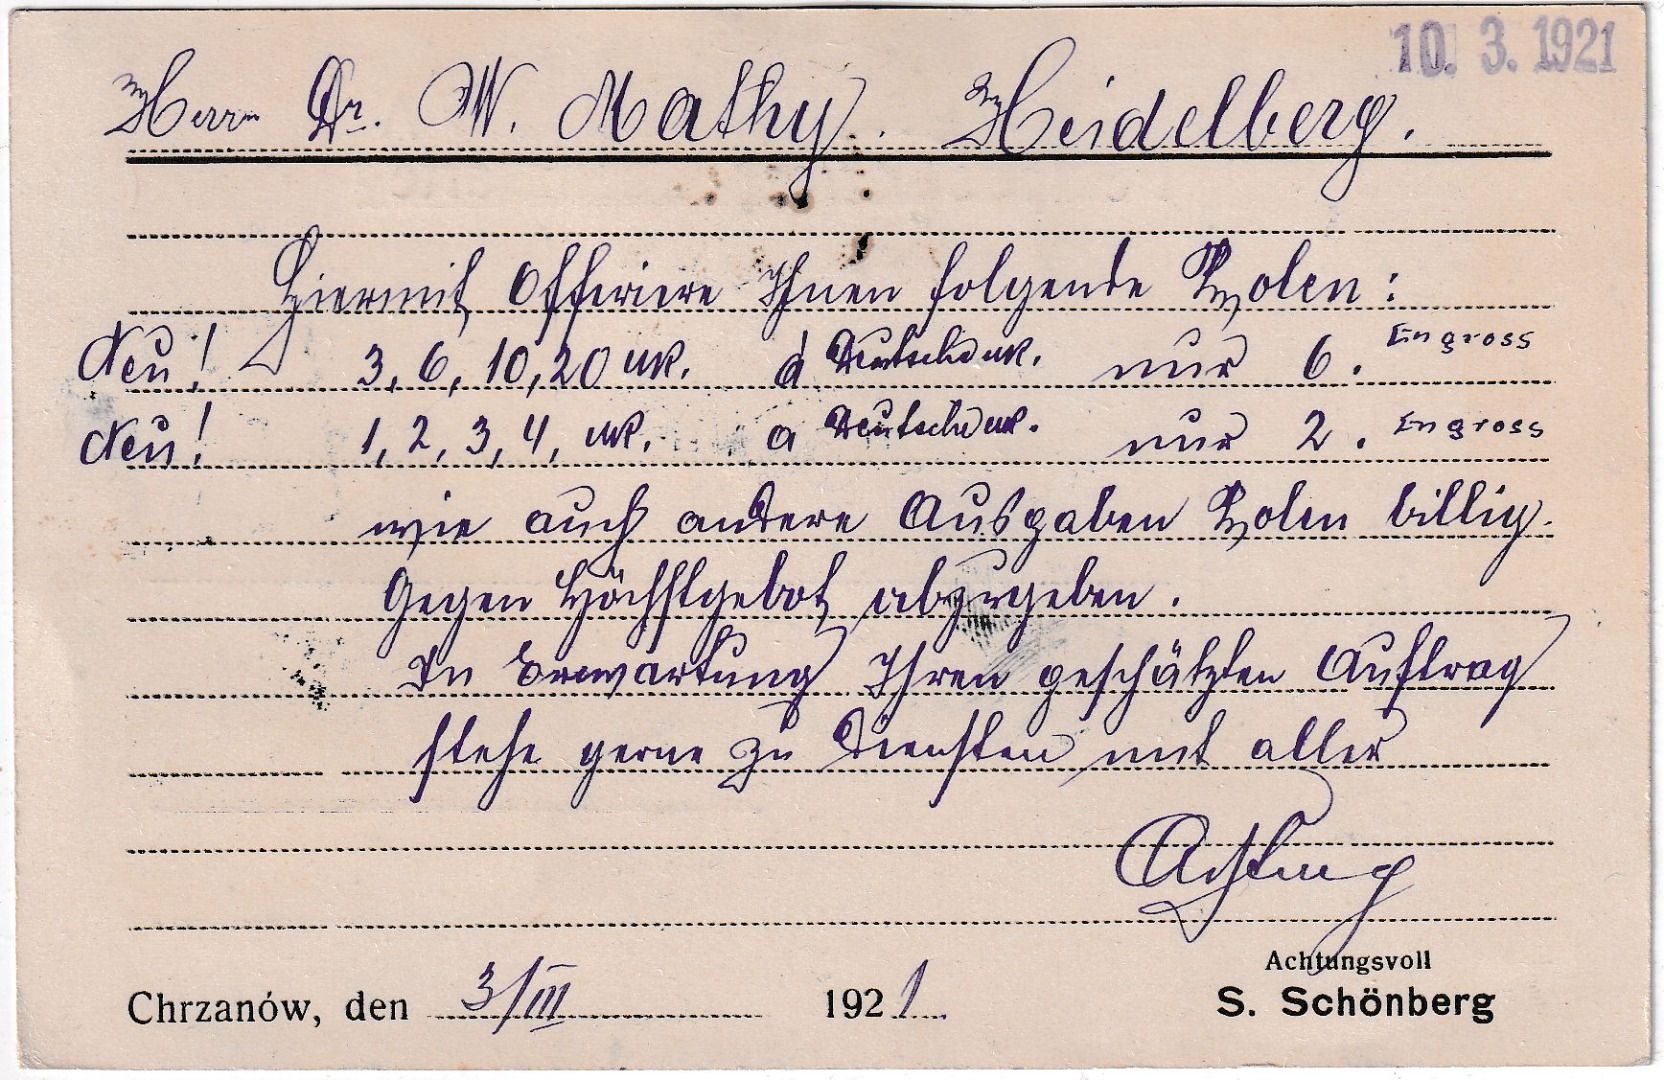 10. 3. 1921
Herrn Dr. W. Mathy. Heidelberg.
Hiermit Offeriere Ihnen folgende Polen:
Neu! 3, 6, 10, 20 MK. à Deutsche MK. nur 6. Engross
Neu! 1, 2, 3, 4, MK. a Deutsche MK. nur 2. Engross
wie auch andere Ausgaben Polen billig.
Gegen Höchstgebot abzugeben.
In Erwartung Ihren geschätzten Auftrag
stehe gerne zu Diensten mit aller
Achtung
Achtungsvoll
Chrzanów, den 3/III 1921 S. Schönberg